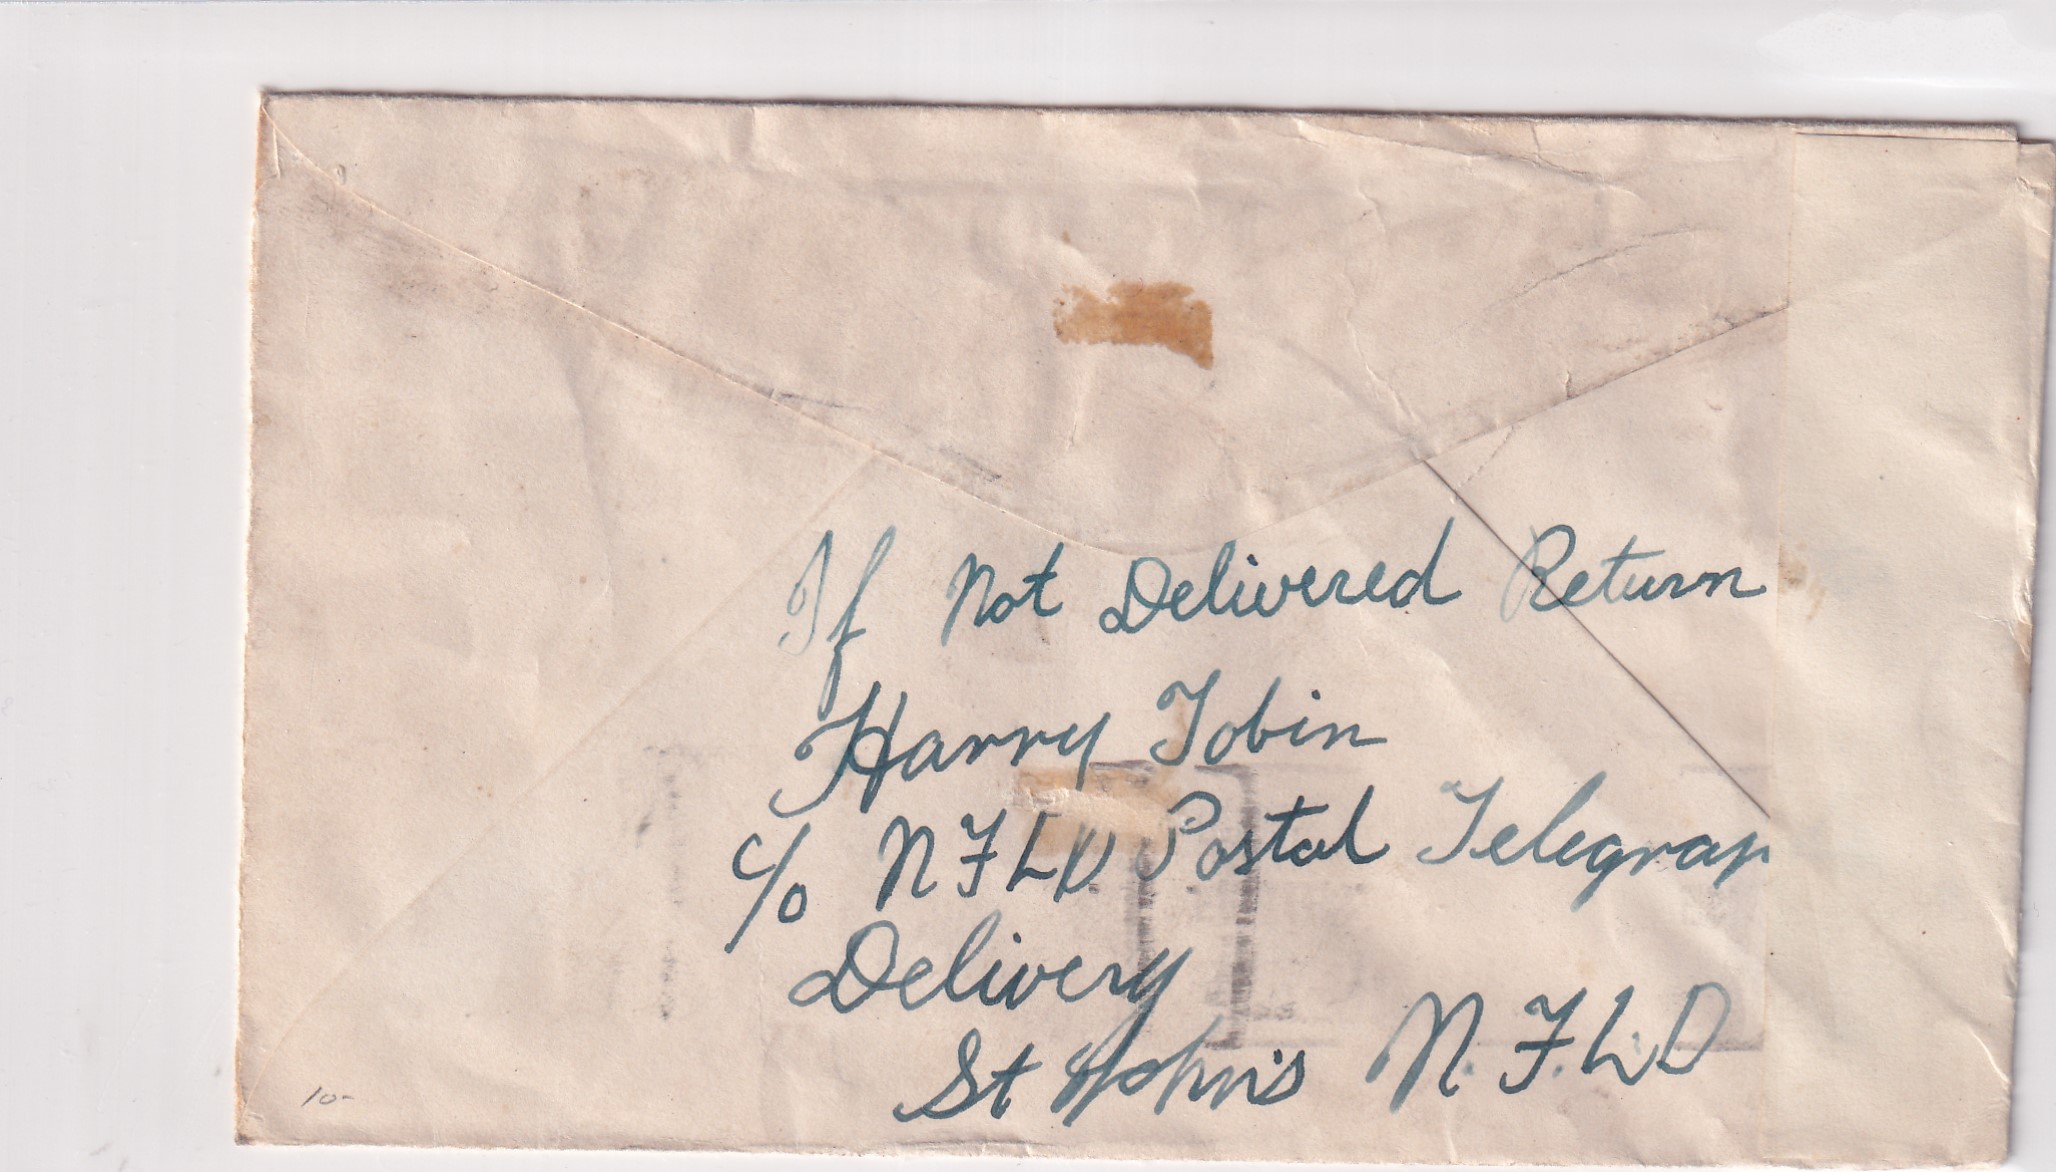 If Not Delivered Return
Harry Tobin
c/o NFLD Postal Telegrap
Delivery
St John's N.F.L.D
10-